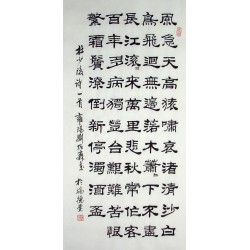 風急天高猿嘯哀渚清沙白
鳥飛迴無邊落木蕭〻下不盡
長江滾〻來萬里悲秋常作客
百年多病獨登臺艱難苦恨
繁霜鬢潦倒新停濁酒盃
杜少陵詩一首